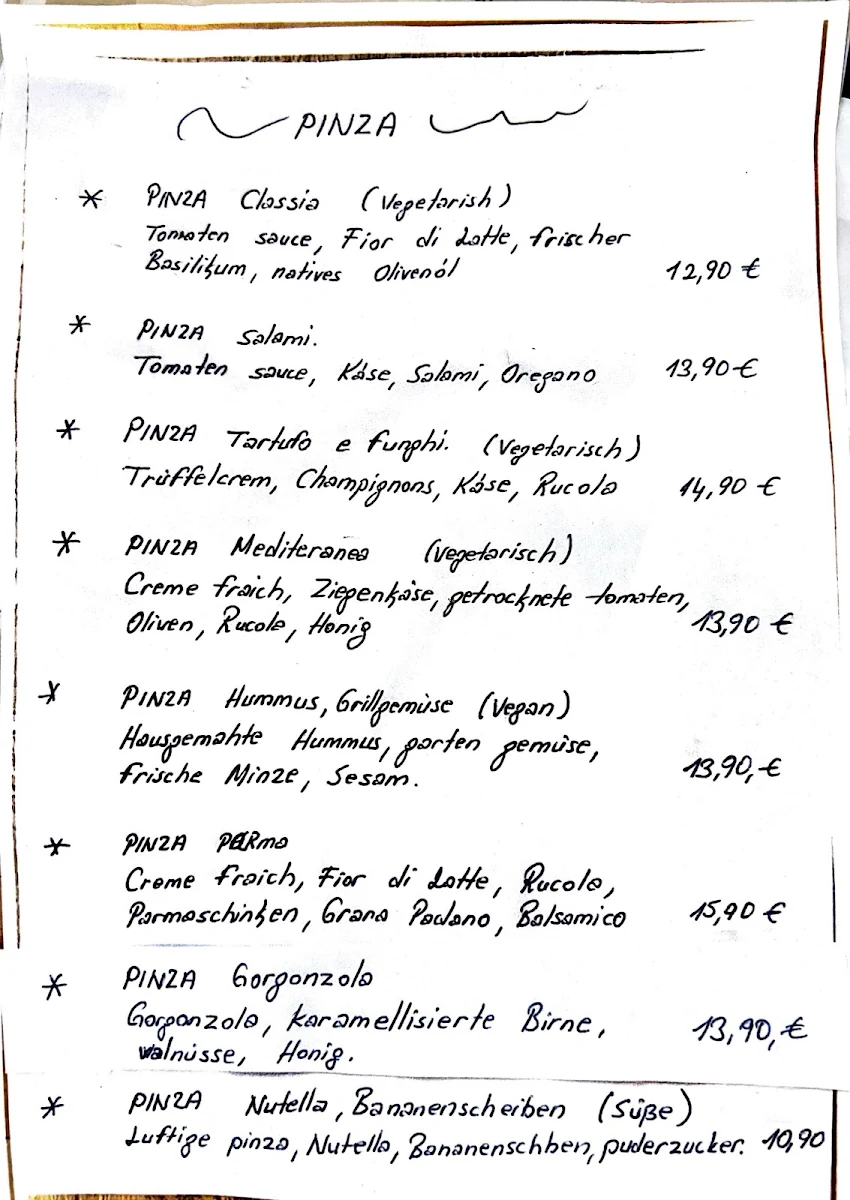 PINZA
* PINZA Classia (Vegetarish)
Tomaten sauce, Fior di Latte, frischer
Basilikum, natives Olivenöl 12,90 €
* PINZA Salami.
Tomaten sauce, Käse, Salami, Oregano 13,90 €
* PINZA Tartufo e funghi. (Vegetarisch)
Trüffelcrem, Champignons, Käse, Rucola 14,90 €
* PINZA Mediteranea (Vegetarisch)
Creme fraich, Ziegenkäse, getrocknete tomaten,
Oliven, Rucola, Honig 13,90 €
* PINZA Hummus, Grillgemüse (Vegan)
Hausgemahte Hummus, garten gemüse,
frische Minze, Sesam. 13,90,€
* PINZA PARma
Creme fraich, Fior di Latte, Rucola,
Parmaschinken, Grana Padano, Balsamico 15,90 €
* PINZA Gorgonzola
Gorgonzola, karamellisierte Birne,
walnüsse, Honig. 13,90,€
* PINZA Nutella, Bananenscheiben (Süße)
Luftige pinza, Nutella, Bananenschhen, puderzucker. 10,90